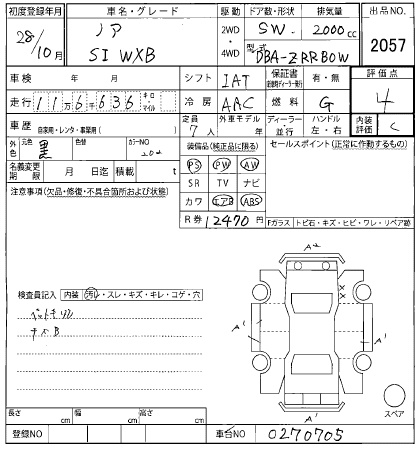 初度登録年月 車名・グレード 駆動 ドア数・形状 排気量 出品NO.
28/10月 ノア 2WD・4WD SW. 2000cc 2057
SI WXB 型式 DBA-ZRR80W
車検 年 月 シフト IAT 保証書 有・無 評価点
走行 11万6千636 キロ・マイル 冷房 AAC 燃料 G 4
車歴 自家用・レンタ・事業用( ) 定員 7人 外車モデル 年 ディーラー・並行 ハンドル 左・右 内装評価 C
外色 元色 黒 色替 カラーNO 202 装備品(純正品に限る) セールスポイント(正常に作動するもの)
名義変更期限 月 日迄 積載 t PS PW AW
注意事項(欠品・修復・不具合箇所および状態) SR TV ナビ
カワ エアB ABS
R券 12470円 Fガラス トビ石・キズ・ヒビ・ワレ・リペア跡
A2
検査員記入 内装 汚レ・スレ・キズ・キレ・コゲ・穴
x
x
A1 A1
A1
スペア
長さ cm 幅 cm 高さ cm
登録NO 車台NO 0270705